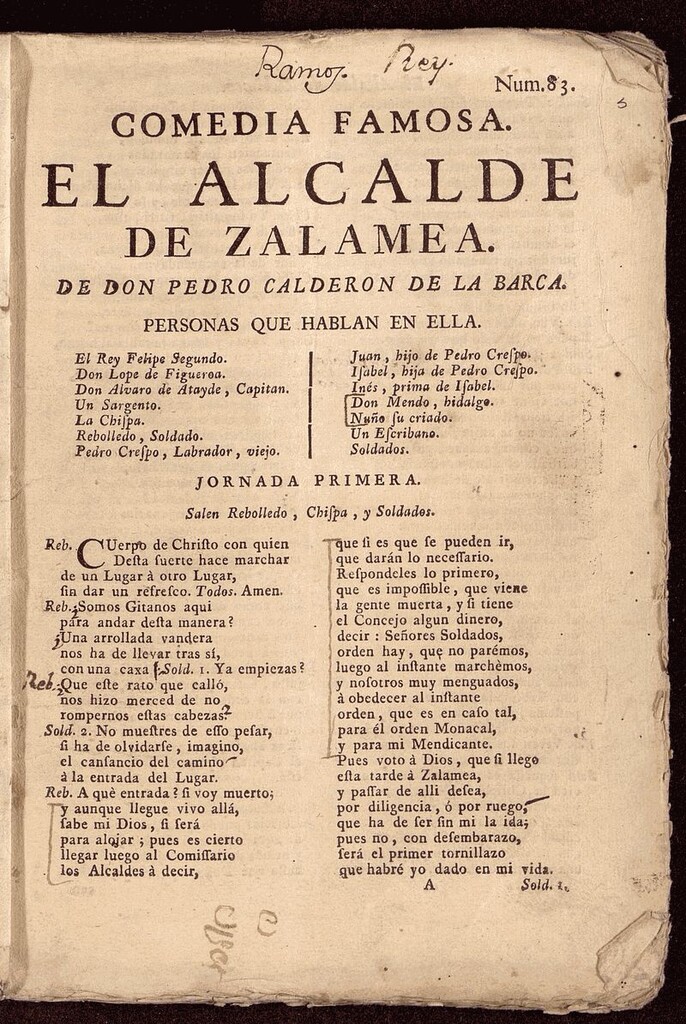 Ramos. Rey.
Num. 83.
COMEDIA FAMOSA.
EL ALCALDE
DE ZALAMEA.
DE DON PEDRO CALDERON DE LA BARCA.
PERSONAS QUE HABLAN EN ELLA.
El Rey Felipe Segundo.
Don Lope de Figueroa.
Don Alvaro de Atayde, Capitan.
Un Sargento.
La Chiſpa.
Rebolledo, Soldado.
Pedro Creſpo, Labrador, viejo.
Juan, hijo de Pedro Creſpo.
Iſabel, hija de Pedro Creſpo.
Inés, prima de Iſabel.
Don Mendo, hidalgo.
Nuño ſu criado.
Un Eſcribano.
Soldados.
JORNADA PRIMERA.
Salen Rebolledo, Chiſpa, y Soldados.
Reb. CUerpo de Chriſto con quien
Deſta ſuerte hace marchar
de un Lugar à otro Lugar,
ſin dar un refreſco. Todos. Amen.
Reb. ¿Somos Gitanos aqui
para andar deſta manera?
¿Una arrollada vandera
nos ha de llevar tras sí,
con una caxa? Sold. 1. Ya empiezas?
Reb. Que eſte rato que calló,
nos hizo merced de no
rompernos eſtas cabezas?
Sold. 2. No mueſtres de eſſo peſar,
ſi ha de olvidarſe, imagino,
el canſancio del camino
à la entrada del Lugar.
Reb. A què entrada? ſi voy muerto;
y aunque llegue vivo allá,
ſabe mi Dios, ſi ſerá
para alojar; pues es cierto
llegar luego al Comiſſario
los Alcaldes à decir,
que ſi es que ſe pueden ir,
que darán lo neceſſario.
Reſpondeles lo primero,
que es impoſſible, que viene
la gente muerta, y ſi tiene
el Concejo algun dinero,
decir: Señores Soldados,
orden hay, que no parémos,
luego al inſtante marchèmos,
y noſotros muy menguados,
à obedecer al inſtante
orden, que es en caſo tal,
para él orden Monacal,
y para mi Mendicante.
Pues voto à Dios, que ſi llego
eſta tarde à Zalamea,
y paſſar de alli deſea,
por diligencia, ó por ruego,
que ha de ſer ſin mi la ida;
pues no, con deſembarazo,
ſerá el primer tornillazo
que habré yo dado en mi vida.
A
Sold. 1.